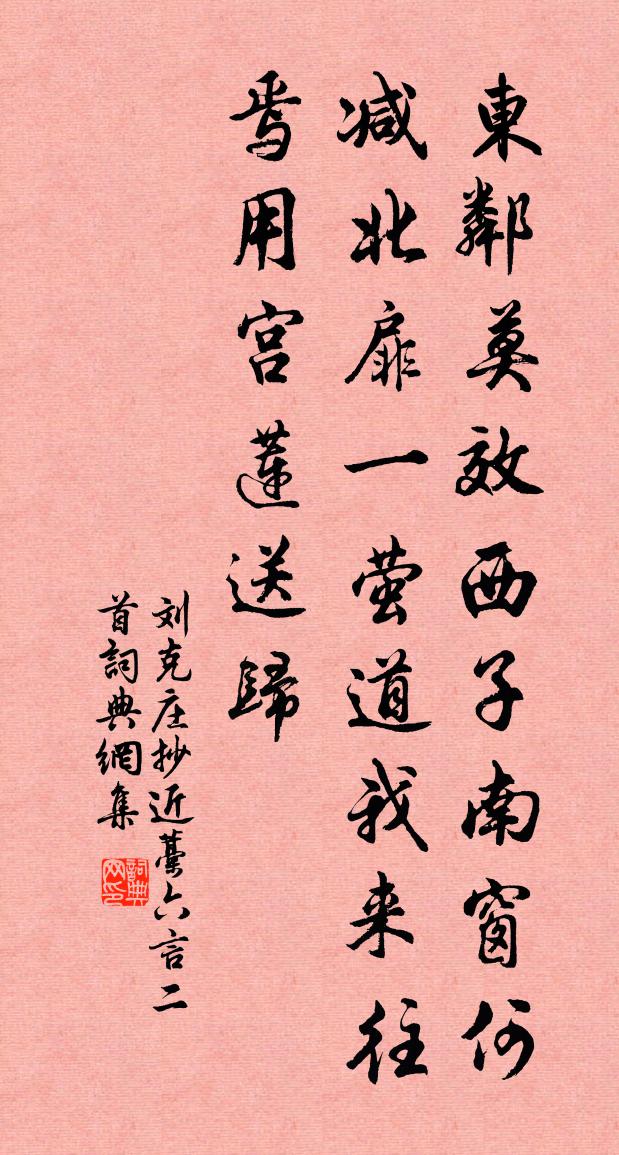 東鄰莫效西子南窗何
减北扉一萤道我来往
焉用宫蓮送歸
刘克庄抄近藁六言二
首詞典網集
詞典
网印